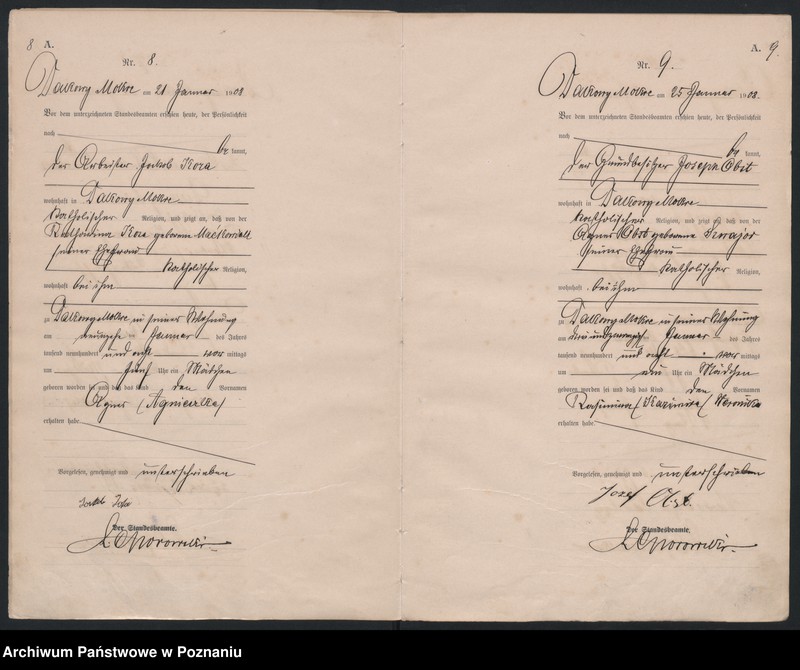 8 A.
Nr. 8.
am 21 Januar 1908
Vor dem unterzeichneten Standesbeamten erschien heute, der Persönlichkeit
nach
be kannt,
der Arbeiter Jakob Kora
wohnhaft in
katholischer Religion, und zeigt an, daß von der
Kora geborene
seiner Ehefrau
katholischer Religion,
wohnhaft bei ihm
zu in seiner Wohnung
am Januar des Jahres
tausend neunhundert und acht vor mittags
um fünf Uhr ein Mädchen
geboren worden sei und daß das Kind den Vornamen
Agnes (Agnieszka)
erhalten habe.
Vorgelesen, genehmigt und unterschrieben
Der Standesbeamte.
A. 9.
Nr. 9.
am 25 Januar 1908.
Vor dem unterzeichneten Standesbeamten erschien heute, der Persönlichkeit
nach
be kannt,
der Grundbesitzer Joseph Obst
wohnhaft in
katholischer Religion, und zeigt an, daß von der
Agnes Obst geborene
seiner Ehefrau
katholischer Religion,
wohnhaft bei ihm
zu in seiner Wohnung
am Januar des Jahres
tausend neunhundert und acht vor mittags
um ein Uhr ein Mädchen
geboren worden sei und daß das Kind den Vornamen
(Kazimira)
erhalten habe.
Vorgelesen, genehmigt und unterschrieben
Jozef Obst.
Der Standesbeamte.
Archiwum Państwowe w Poznaniu